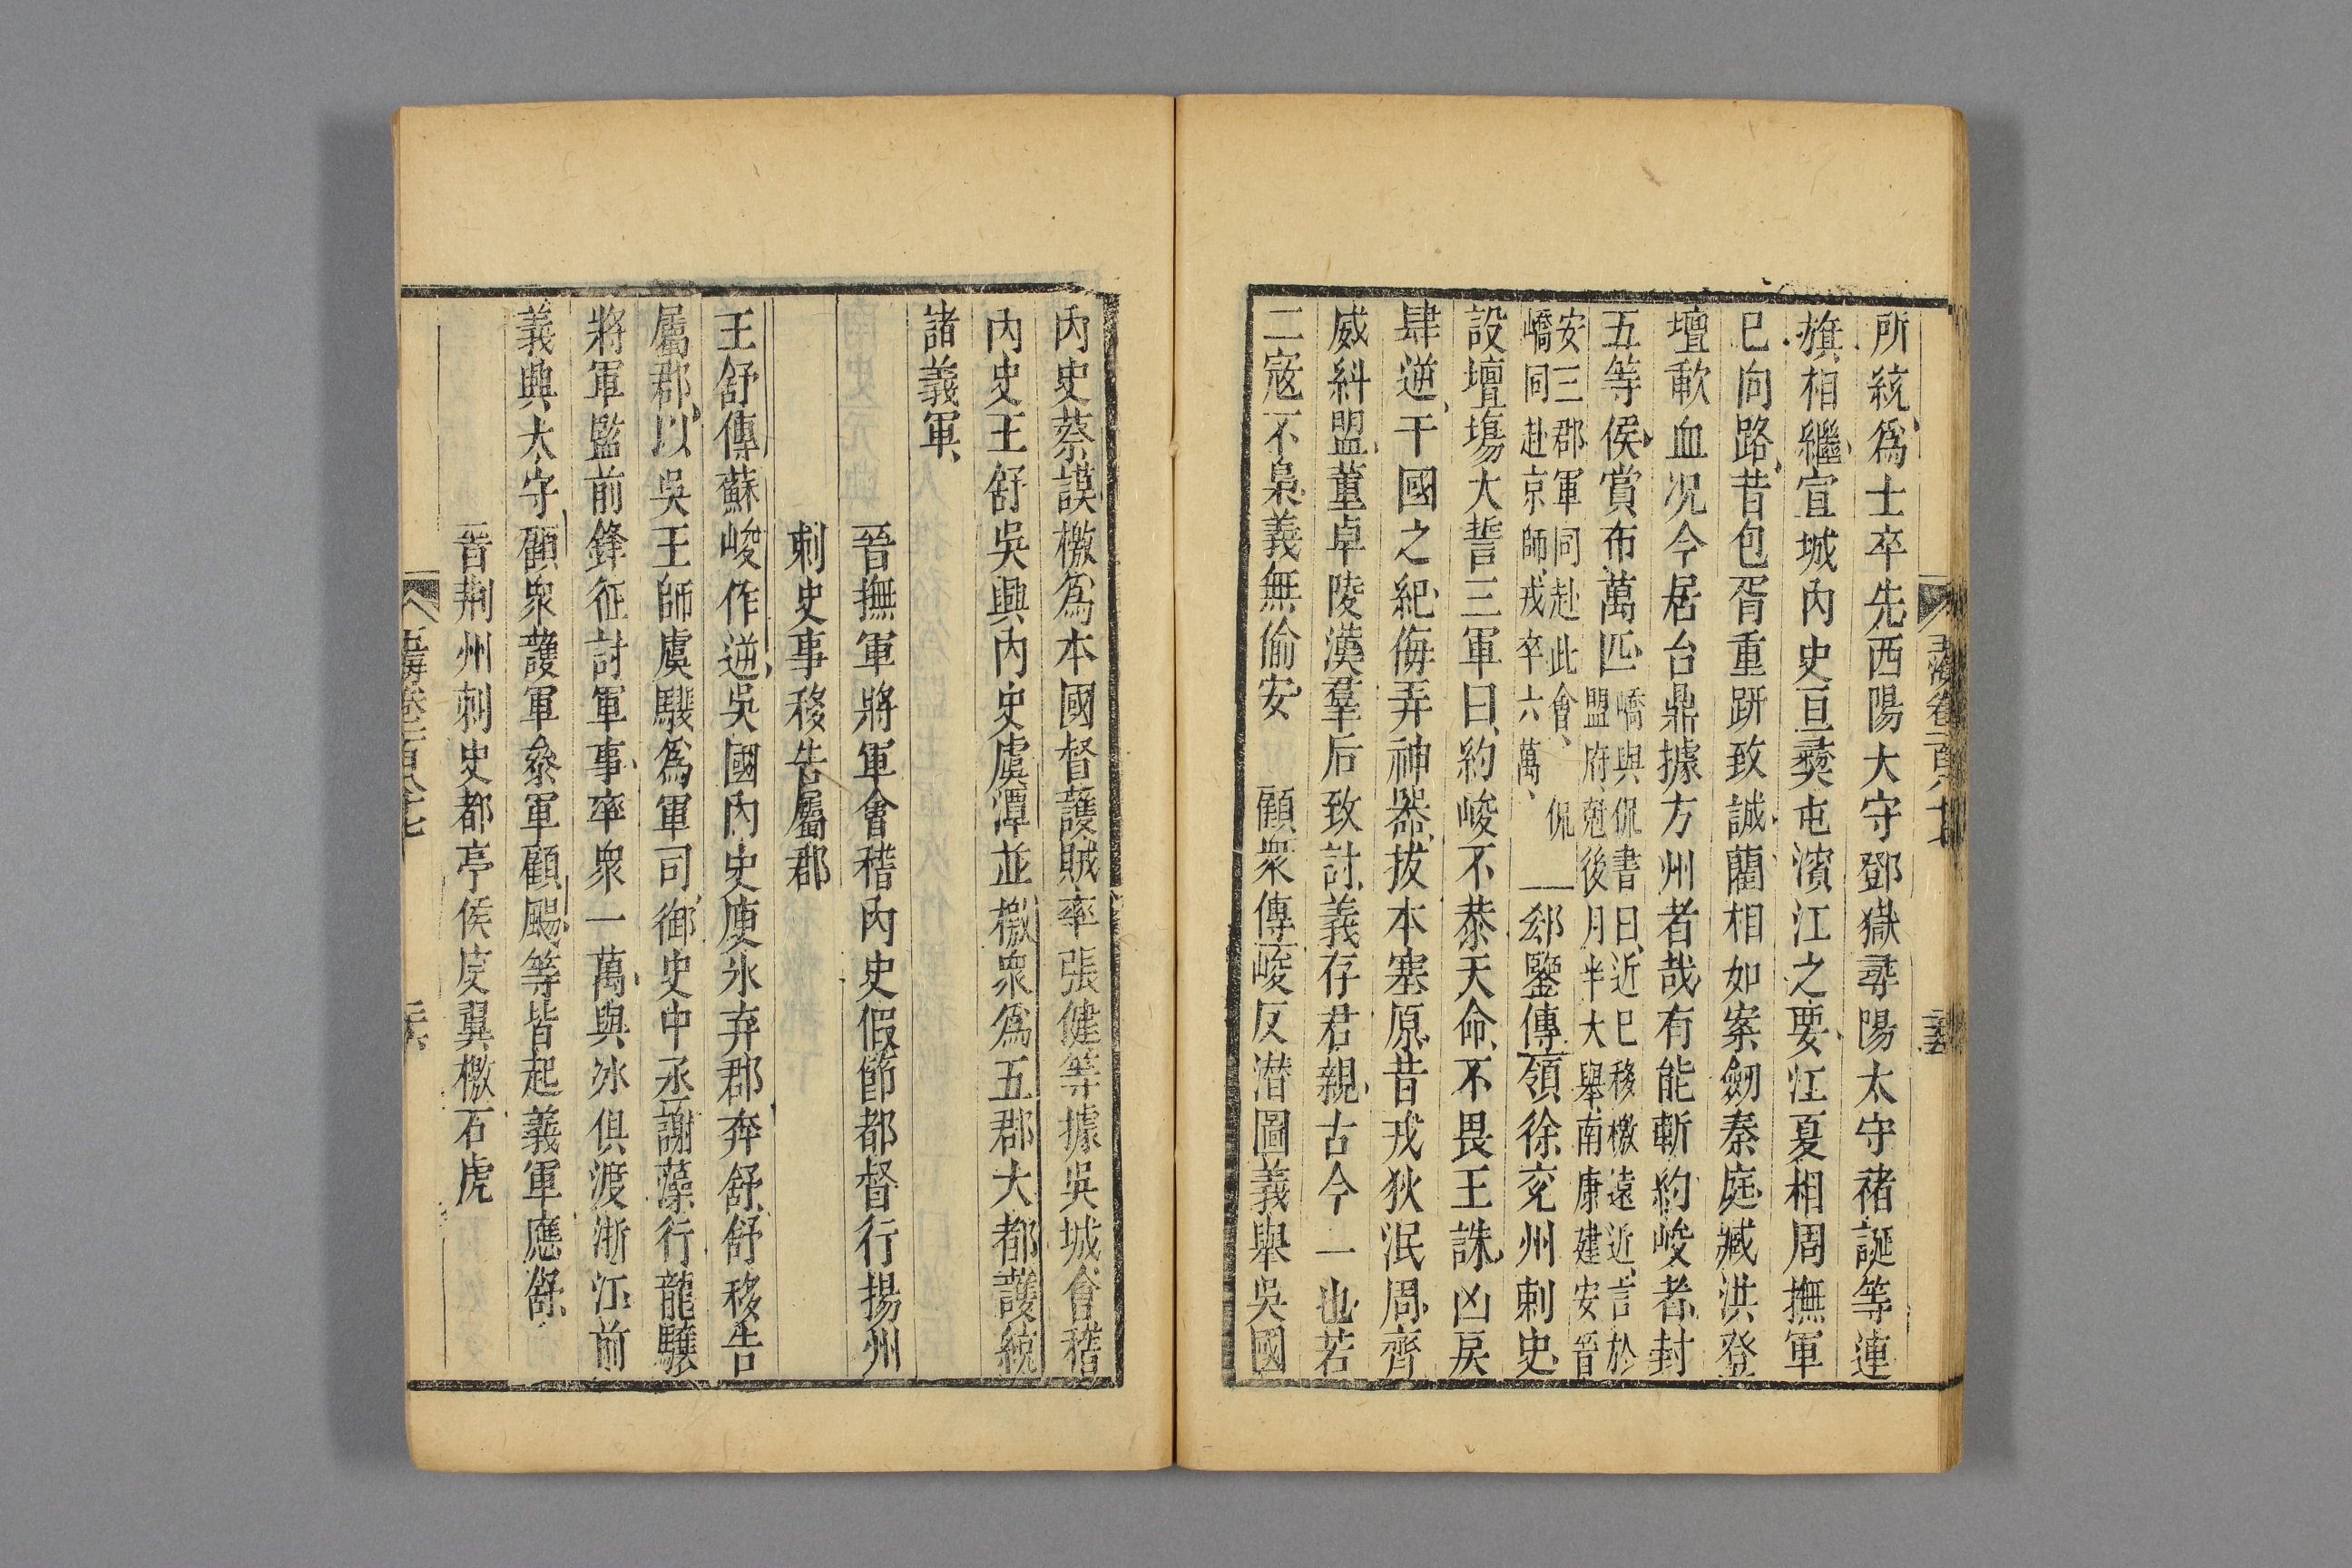 玉海卷一百八十七
所統爲士卒先西陽大守鄧嶽尋陽太守褚誕等連
旗相繼宣城內史亘彝屯濱江之要江夏相周撫軍
巳向路昔包胥重趼致誠藺相如案劒秦庭臧洪登
壇歃血况今居台鼎據方州者哉有能斬約峻者封
五等侯賞布萬匹嶠與侃書曰近巳移檄遠近言於
盟府尅後月半大舉南康建安晉
安三郡軍同赴此會侃
嶠同赴京師戎卒六萬
郄鑒傳領徐兖州刺史
設壇塲大誓三軍曰約峻不恭天命不畏王誅凶戾
肆逆干國之紀侮弄神器拔本塞原昔戎狄泯周齊
威糾盟董卓陵漢羣后致討義存君親古今一也若
二宼不梟義無偷安 顧衆傳峻反潜圖義舉吳國
內史蔡謨檄爲本國督護賊率張健等據吳城會稽
內史王舒吳興內史虞潭並檄衆爲五郡大都護統
諸義軍
晉撫軍將軍會稽內史假節都督行揚州
刺史事移告屬郡
王舒傳蘇峻作逆吳國內史庾氷弃郡奔舒舒移告
屬郡以吳王師虞騣爲軍司御史中丞謝藻行龍驤
將軍監前鋒征討軍事率衆一萬與氷俱渡浙江前
義興太守顧衆護軍叅軍顧颺等皆起義軍應舒
晉荆州刺史都亭侯庾翼檄石虎
玉海卷一百八十七